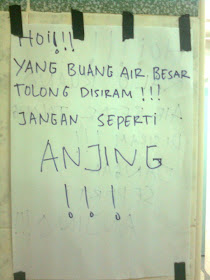 Hoi!!!
YANG BUANG AIR BESAR
TOLONG DISIRAM !!!
JANGAN SEPERTI
ANJING
!!!